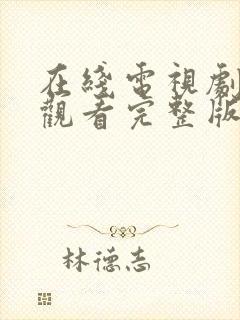 在綫電視劇
觀看完整版
林德志